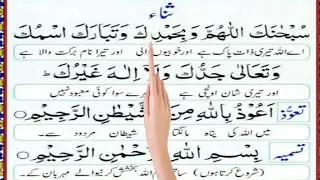 ثناء
سُبْحٰنَكَ اللّٰهُمَّ وَبِحَمْدِكَ وَتَبَارَكَ اسْمُكَ
اے اللہ تیری ذات پاک ہے اور خوبیوں والی اور تیرا نام برکت والا ہے
وَتَعَالٰى جَدُّكَ وَلَآ اِلٰهَ غَيْرُكَ
اور تیری شان اونچی ہے سوا کوئی معبود نہیں
تعوّذ اَعُوْذُ بِاللّٰهِ مِنَ الشَّيْطٰنِ الرَّجِيْمِ
میں اللہ کی پناہ مانگتا شیطان مردود سے۔
تسمیہ بِسْمِ اللّٰهِ الرَّحْمٰنِ الرَّحِيْمِ
(شروع کرتا ہوں) اللہ بخشش کرنیوالے مہربان کے۔